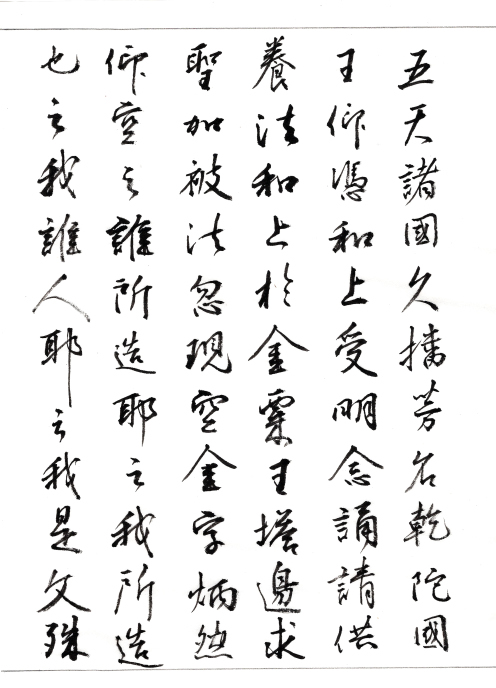 五天諸國久播芳名乾陀國
王仰憑和上受明念誦請供
養法和上於金粟王塔邊求
聖加被法忽現空金字炳然
仰空云誰所造耶云我所造
也云我誰人耶云我是文殊